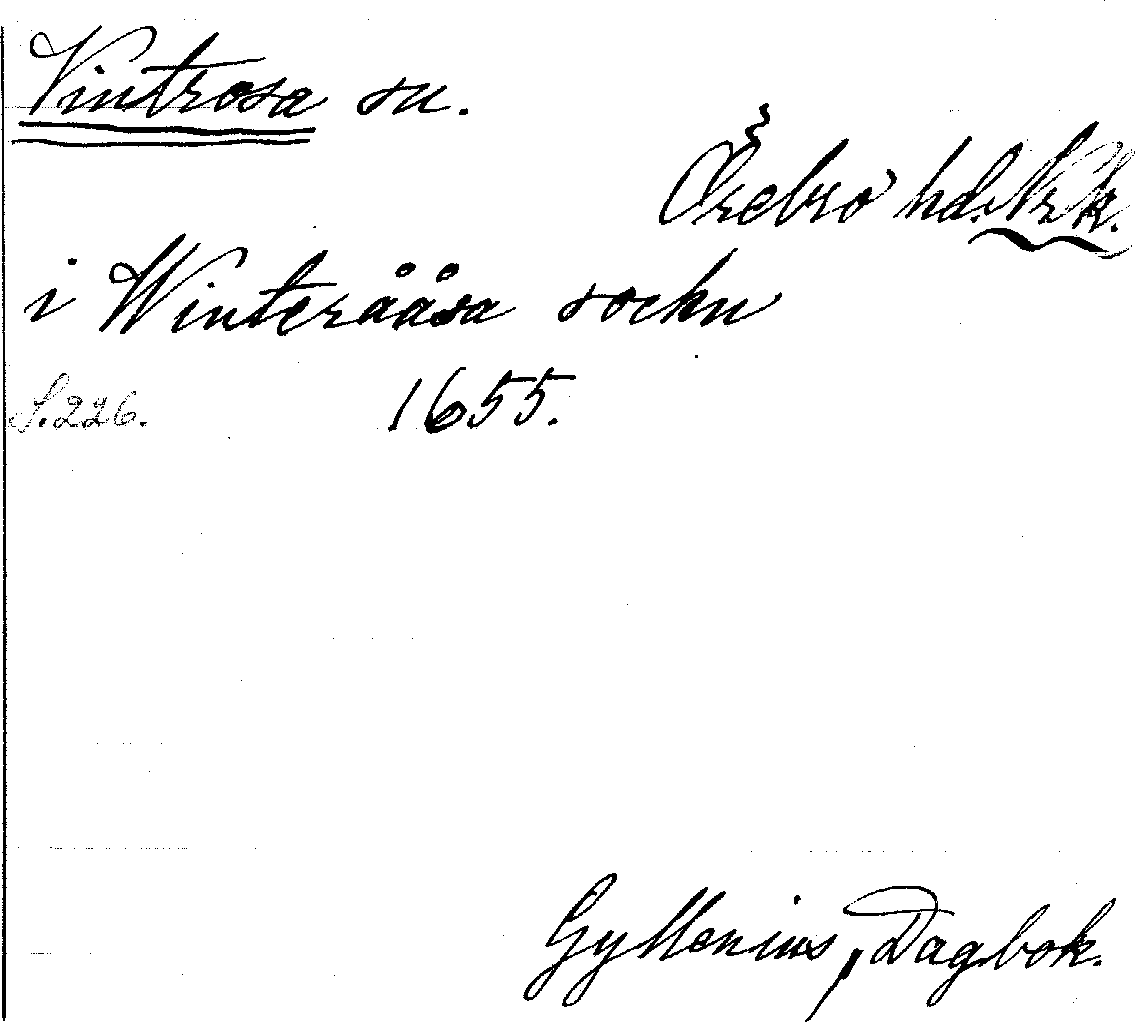 Vintrosa sn.
Örebro hd. Nrk.
i Winterååsa sochn
S. 226. 1655.
Gyllenius, Dagbok.